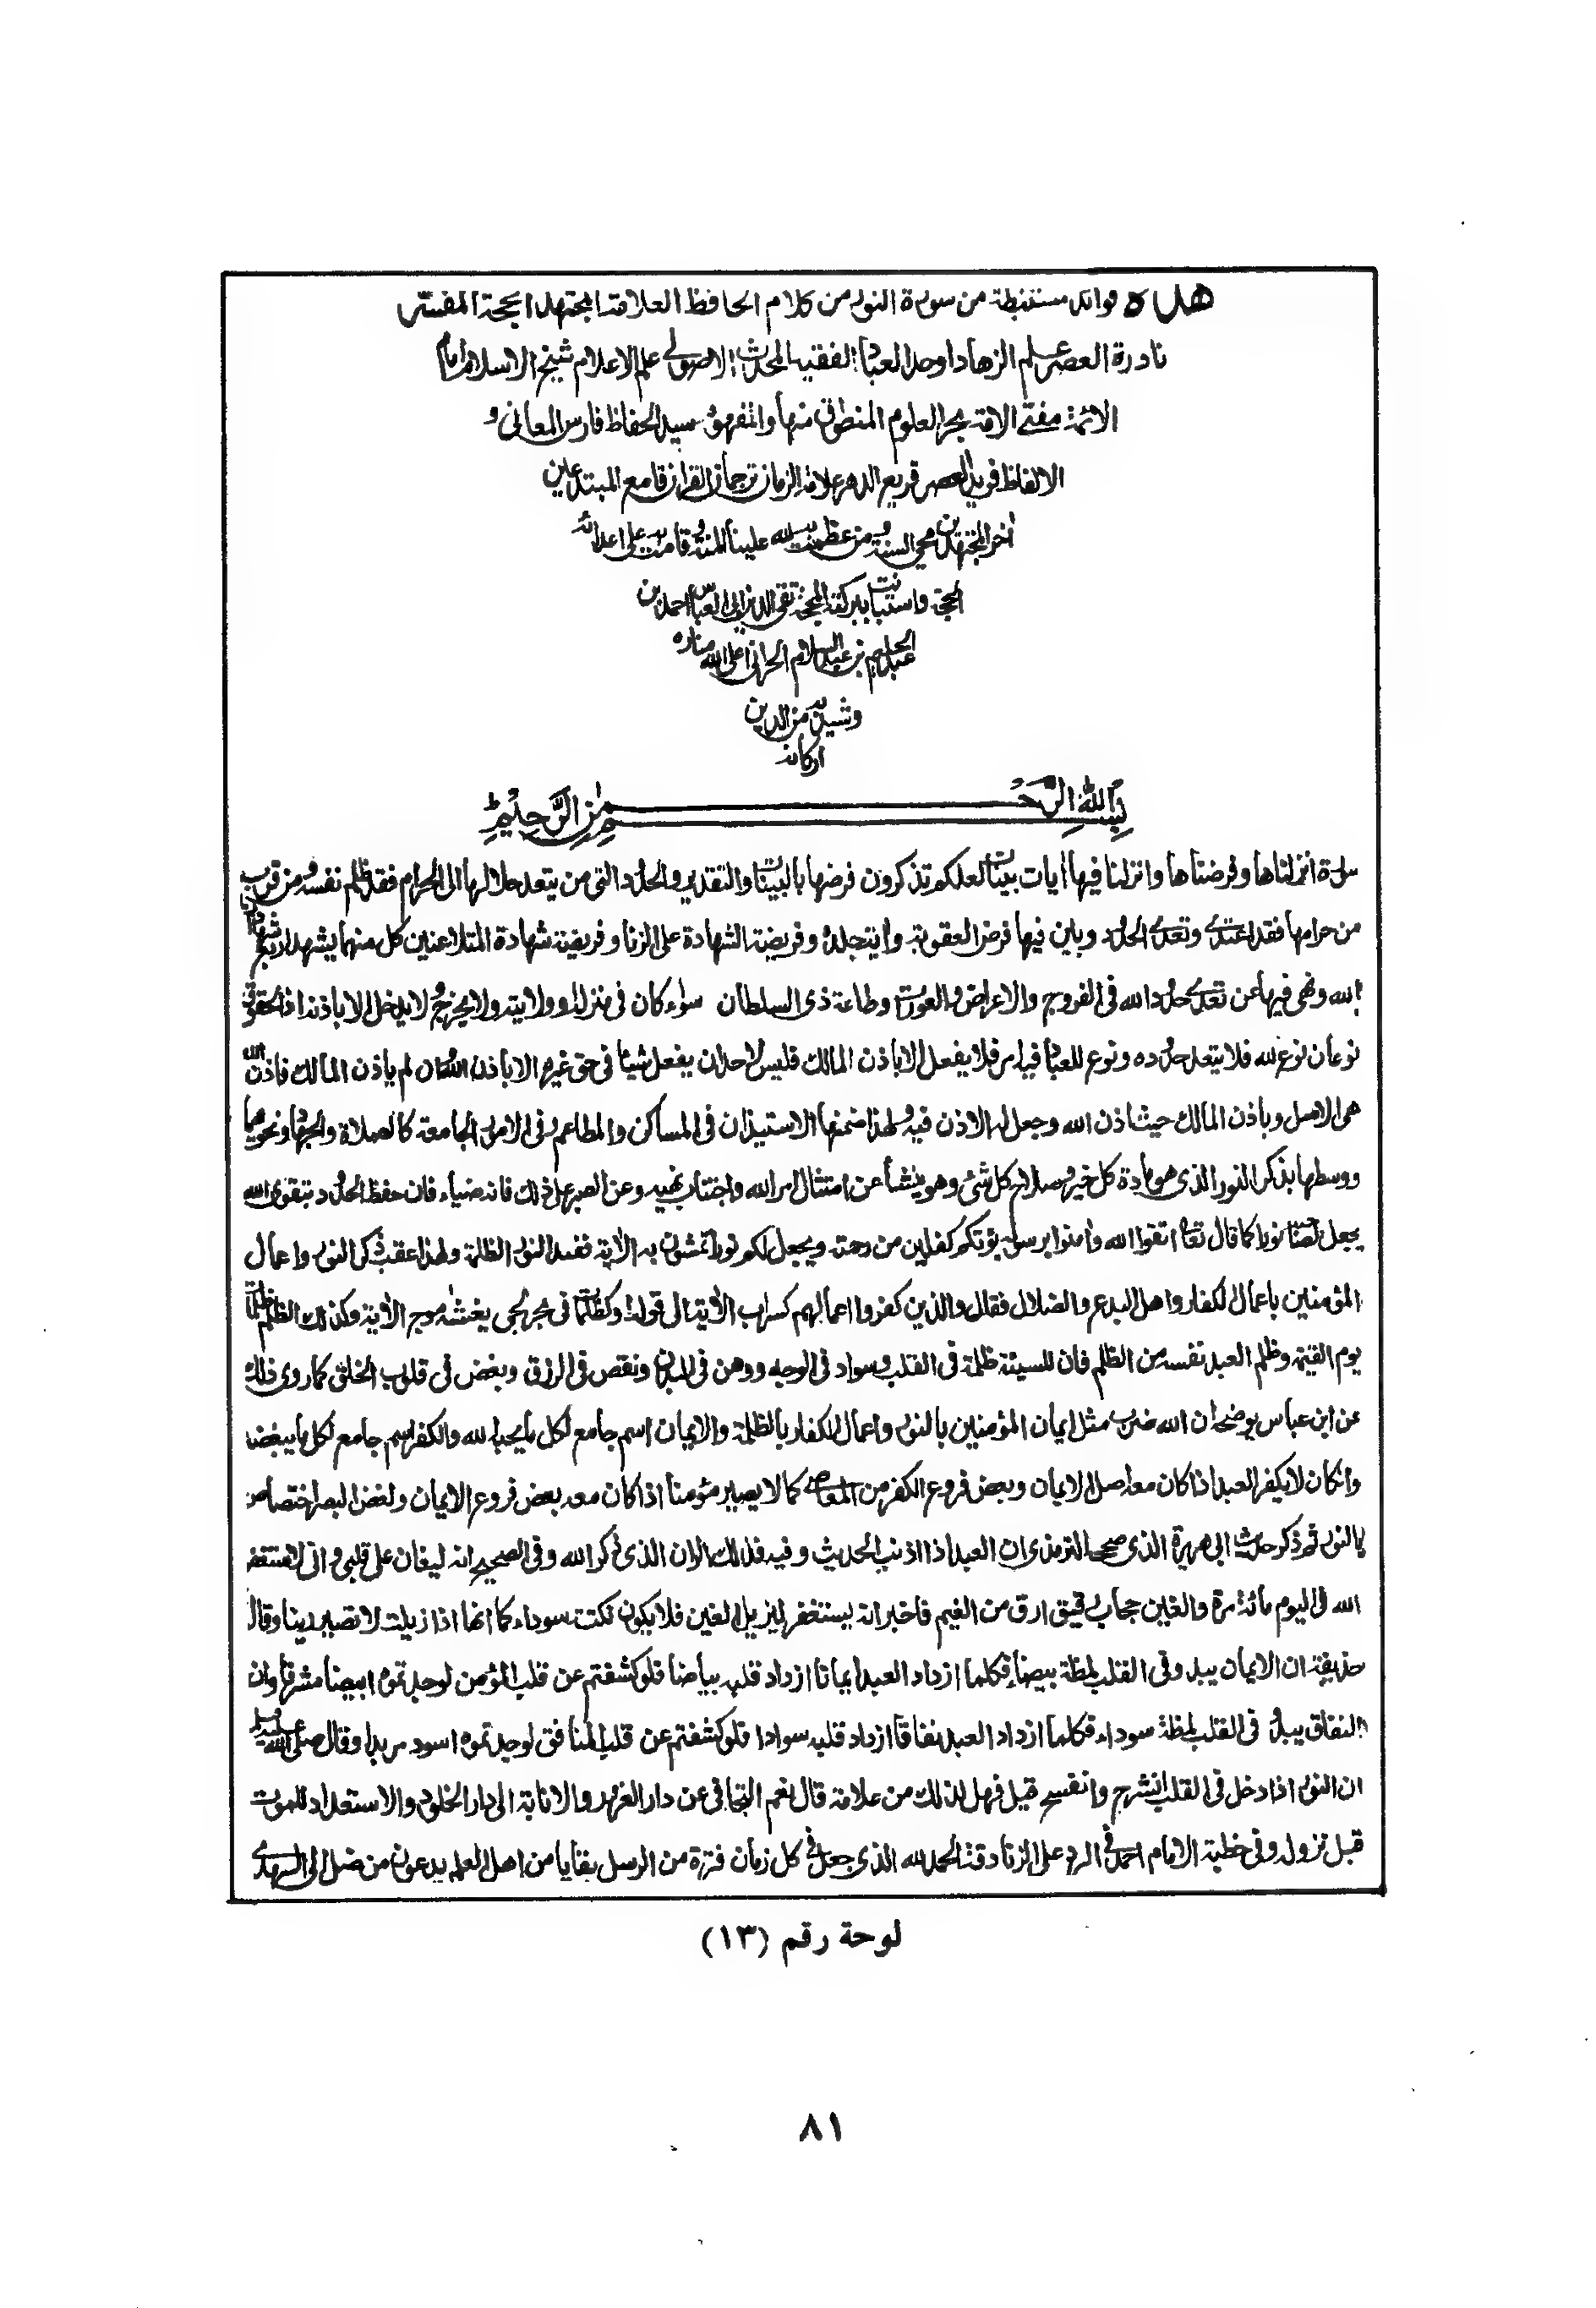 هذه فوائد مستنبطة من سورة النور من كلام الحافظ العلامة المجتهد الحجة المفسر
نادرة العصر علم الزهاد اوحد العباد الفقيه المحدث الاصولى علم الاعلام شيخ الاسلام امام
الائمة مفتى الامة بحر العلوم المنطوق منها والمفهوم سيد الحفاظ فارس المعانى و
الالفاظ فريد العصر قريع الدهر علامة الزمان ترجمان القران قامع المبتدعين
اخر المجتهدين محي السنة ومن عظمت به لله علينا المنة وقامت به على اعدائه
الحجة واستبانت ببركته المحجة تقى الدين ابى العباس احمد بن
عبد الحليم بن عبد السلام الحرانى اعلى الله مناره
وشيد به من الدين
اركانه
بِسْمِ اللهِ الرَّحْمٰنِ الرَّحِيْمِ
سورة انزلناها وفرضناها وانزلنا فيها آيات بينات لعلكم تذكرون فرضها بالبينات والتقدير والحدود التى من يتعد حلالها الى الحرام فقد ظلم نفسه ومن قرب
من حرامها فقد اعتدى وتعدى الحدود وبين فيها فرض العقوبة وآية الجلد وفريضة الشهادة على الزنا وفريضة شهادة المتلاعنين كل منهما يشهد اربع شهادات
بالله ونهى فيها عن تعدى حدود الله فى الفروج والاعراض والعورات وطاعة ذى السلطان سواء كان فى منزله او ولايته ولا يخرج ولا يدخل الا باذنه اذ الحقوق
نوعان نوع لله فلا يتعد حدوده ونوع للعباد فيه امر فلا يفعل الا باذن المالك فليس لاحد ان يفعل شيئا فى حق غيره الا باذن الله وان لم ياذن المالك فاذن الله
هو الاصل وباذن المالك حيث اذن الله وجعل له الاذن فيه ولهذا ضمنها الاستيذان فى المساكن والمطاعم وفى الامور الجامعة كالصلاة والجهاد ونحوهما
ووسطها بذكر النور الذى هو مادة كل خير وصلاح كل شئ وهو ينشأ عن امتثال امر الله واجتناب نهيه وعن الصبر على ذلك فانه ضياء فان حفظ الحدود بتقوى الله
يجعل لصاحبه نورا كما قال تعا اتقوا الله وآمنوا برسوله يؤتكم كفلين من رحمته ويجعل لكم نورا تمشون به الآية فضد النور الظلمة ولهذا عقب ذكر النور واعمال
المؤمنين باعمال الكفار واهل البدع والضلال فقال والذين كفروا اعمالهم كسراب الآية الى قوله او كظلمات فى بحر لجى يغشٰه موج الآية وكذلك الظلم ظلمات
يوم القيمة وظلم العبد نفسه من الظلم فان للسيئة ظلمة فى القلب وسواد فى الوجه ووهن فى البدن ونقص فى الرزق وبغض فى قلوب الخلق كما روى ذلك
عن ابن عباس يوضحه ان الله ضرب مثل ايمان المؤمنين بالنور واعمال الكفار بالظلمة والايمان اسم جامع لكل ما يحبه الله والكفر اسم جامع لكل ما يبغضه
وان كان لا يكفر العبد اذا كان معه اصل الايمان وبعض فروع الكفر من المعاصى كما لا يصير مؤمنا اذا كان معه بعض فروع الايمان ولغض البصر اختصاص
بالنور ثم ذكر حديث ابى هريرة الذى صححه الترمذى ان العبد اذا اذنب الحديث وفيه فذلك الران الذى ذكر الله وفى الصحيح انه ليغان على قلبى وانى لاستغفر
الله فى اليوم مائة مرة والغين حجاب رقيق ارق من الغيم فاخبر انه يستغفر ليزيل الغين فلا يكون نكتة سوداء كما انها اذا ازيلت لا تصير رينا وقال
حذيفة ان الايمان يبدو فى القلب لمظة بيضاء فكلما ازداد العبد ايمانا ازداد قلبه بياضا فلو كشفتم عن قلب المؤمن لوجدتموه ابيض مشرقا وان
النفاق يبدو فى القلب لمظة سوداء فكلما ازداد العبد نفاقا ازداد قلبه سوادا فلو كشفتم عن قلب المنافق لوجدتموه اسود مربدا وقال صلى الله عليه وسلم
ان النور اذا دخل فى القلب انشرح وانفسح قيل فهل لذلك من علامة قال نعم التجافى عن دار الغرور والانابة الى دار الخلود والاستعداد للموت
قبل نزوله وفى خطبة الامام احمد فى الرد على الزنادقة الحمد لله الذى جعل فى كل زمان فترة من الرسل بقايا من اهل العلم يدعون من ضل الى الهدى
لوحة رقم (١٣)
٨١